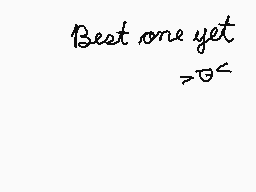 Best one yet
>σ<